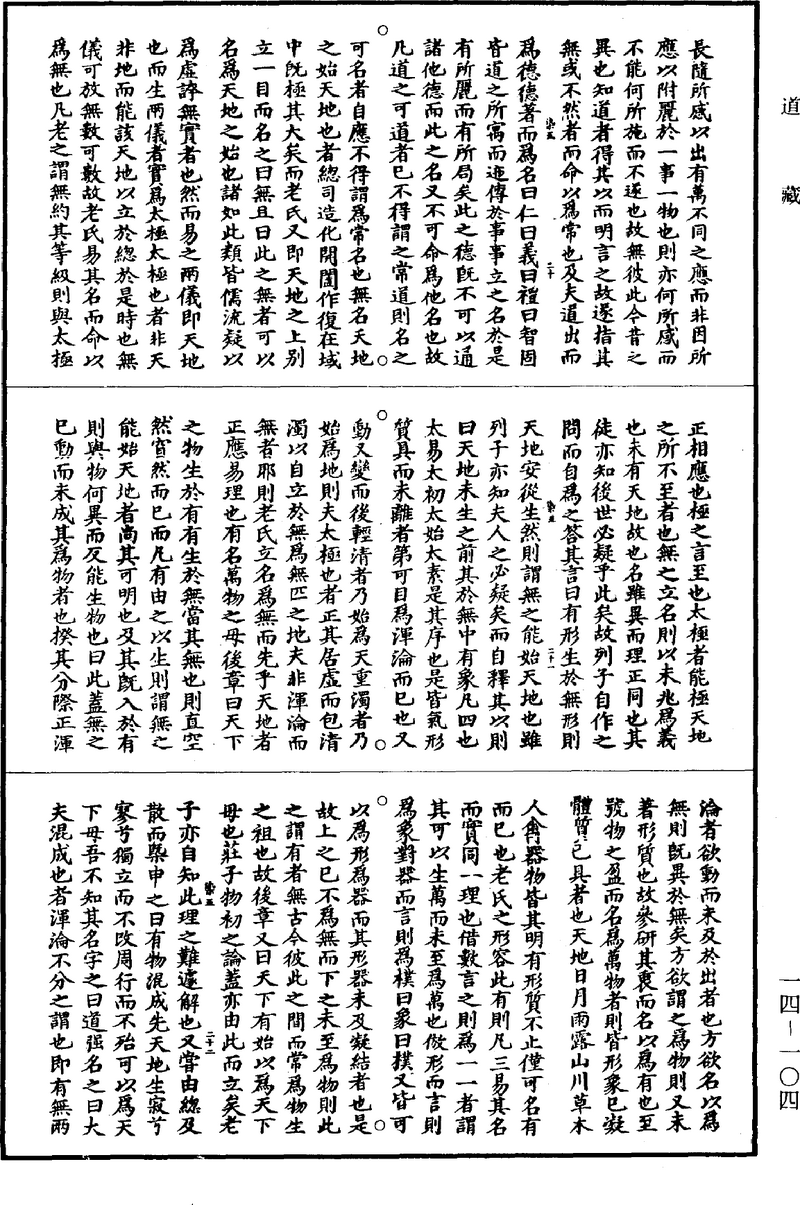 道藏
長隨所感以出有萬不同之應而非因所
應以附麗於一事一物也則亦何所感而
不能何所施而不遂也故無彼此今昔之
異也知道者得其以而明言之故遂指其
無或不然者而命以爲常也及夫道出而
爲德德著而爲名曰仁曰義曰禮曰智固
皆道之所寓而迹傳於事事立之名於是
有所麗而有所局矣此之德旣不可以通
諸他德而此之名又不可命爲他名也故
凡道之可道者已不得謂之常道則名之
可名者自應不得謂爲常名也無名天地
之始天地也者總司造化開闔作復在域
中旣極其大矣而老氏又即天地之上別
立一目而名之曰無且曰此之無者可以
名爲天地之始也諸如此類皆儒流疑以
爲虛誇無實者也然而易之兩儀即天地
也而生兩儀者實爲太極太極也者非天
非地而能該天地以立於總於是時也無
儀可放無數可數故老氏易其名而命以
爲無也凡老之謂無約其等級則與太極
正相應也極之言至也太極者能極天地
之所不至者也無之立名則以未兆爲義
也未有天地故也名雖異而理正同也其
徒亦知後世必疑乎此矣故列子自作之
問而自爲之答其言曰有形生於無形則
天地安從生然則謂無之能始天地也雖
列子亦知夫人之必疑矣而自釋其以則
曰天地未生之前其於無中有象凡四也
太易太初太始太素是其序也是皆氣形
質具而未離者第可目爲渾淪而已也又
動又變而後輕清者乃始爲天重濁者乃
始爲地則夫太極也者正其居虛而包清
濁以自立於無爲無匹之地夫非渾淪而
無者耶則老氏立名爲無而先乎天地者
正應易理也有名萬物之母後章曰天下
之物生於有有生於無當其無也則直空
然窅然而已而凡有由之以生則謂無之
能始天地者尚其可明也及其旣入於有
則與物何異而反能生物也曰此蓋無之
已動而未成其爲物者也揆其分際正渾
淪者欲動而未及於出者也方欲名以爲
無則旣異於無矣方欲謂之爲物則又未
著形質也故參研其衷而名以爲有也至
號物之盈而名爲萬物者則皆形象已凝
體質已具者也天地日月雨露山川草木
人禽器物皆其明有形質不止僅可名有
而已也老氏之形容此有則凡三易其名
而實同一理也借數言之則爲一一者謂
其可以生萬而未至爲萬也倣形而言則
爲象對器而言則爲樸曰象曰樸又皆可
以爲形爲器而其形器未及凝結者也是
故上之已不爲無而下之未至爲物則此
之謂有者無古今彼此之間而常爲物生
之祖也故後章又曰天下有始以爲天下
母也莊子物初之論蓋亦由此而立矣老
子亦自知此理之難遽解也又嘗由總及
散而槩申之曰有物混成先天地生寂兮
寥兮獨立而不改周行而不殆可以爲天
下母吾不知其名字之曰道强名之曰大
夫混成也者渾淪不分之謂也即有無兩
染五
二十
染五
二十一
染五
二十二
一四－一〇四